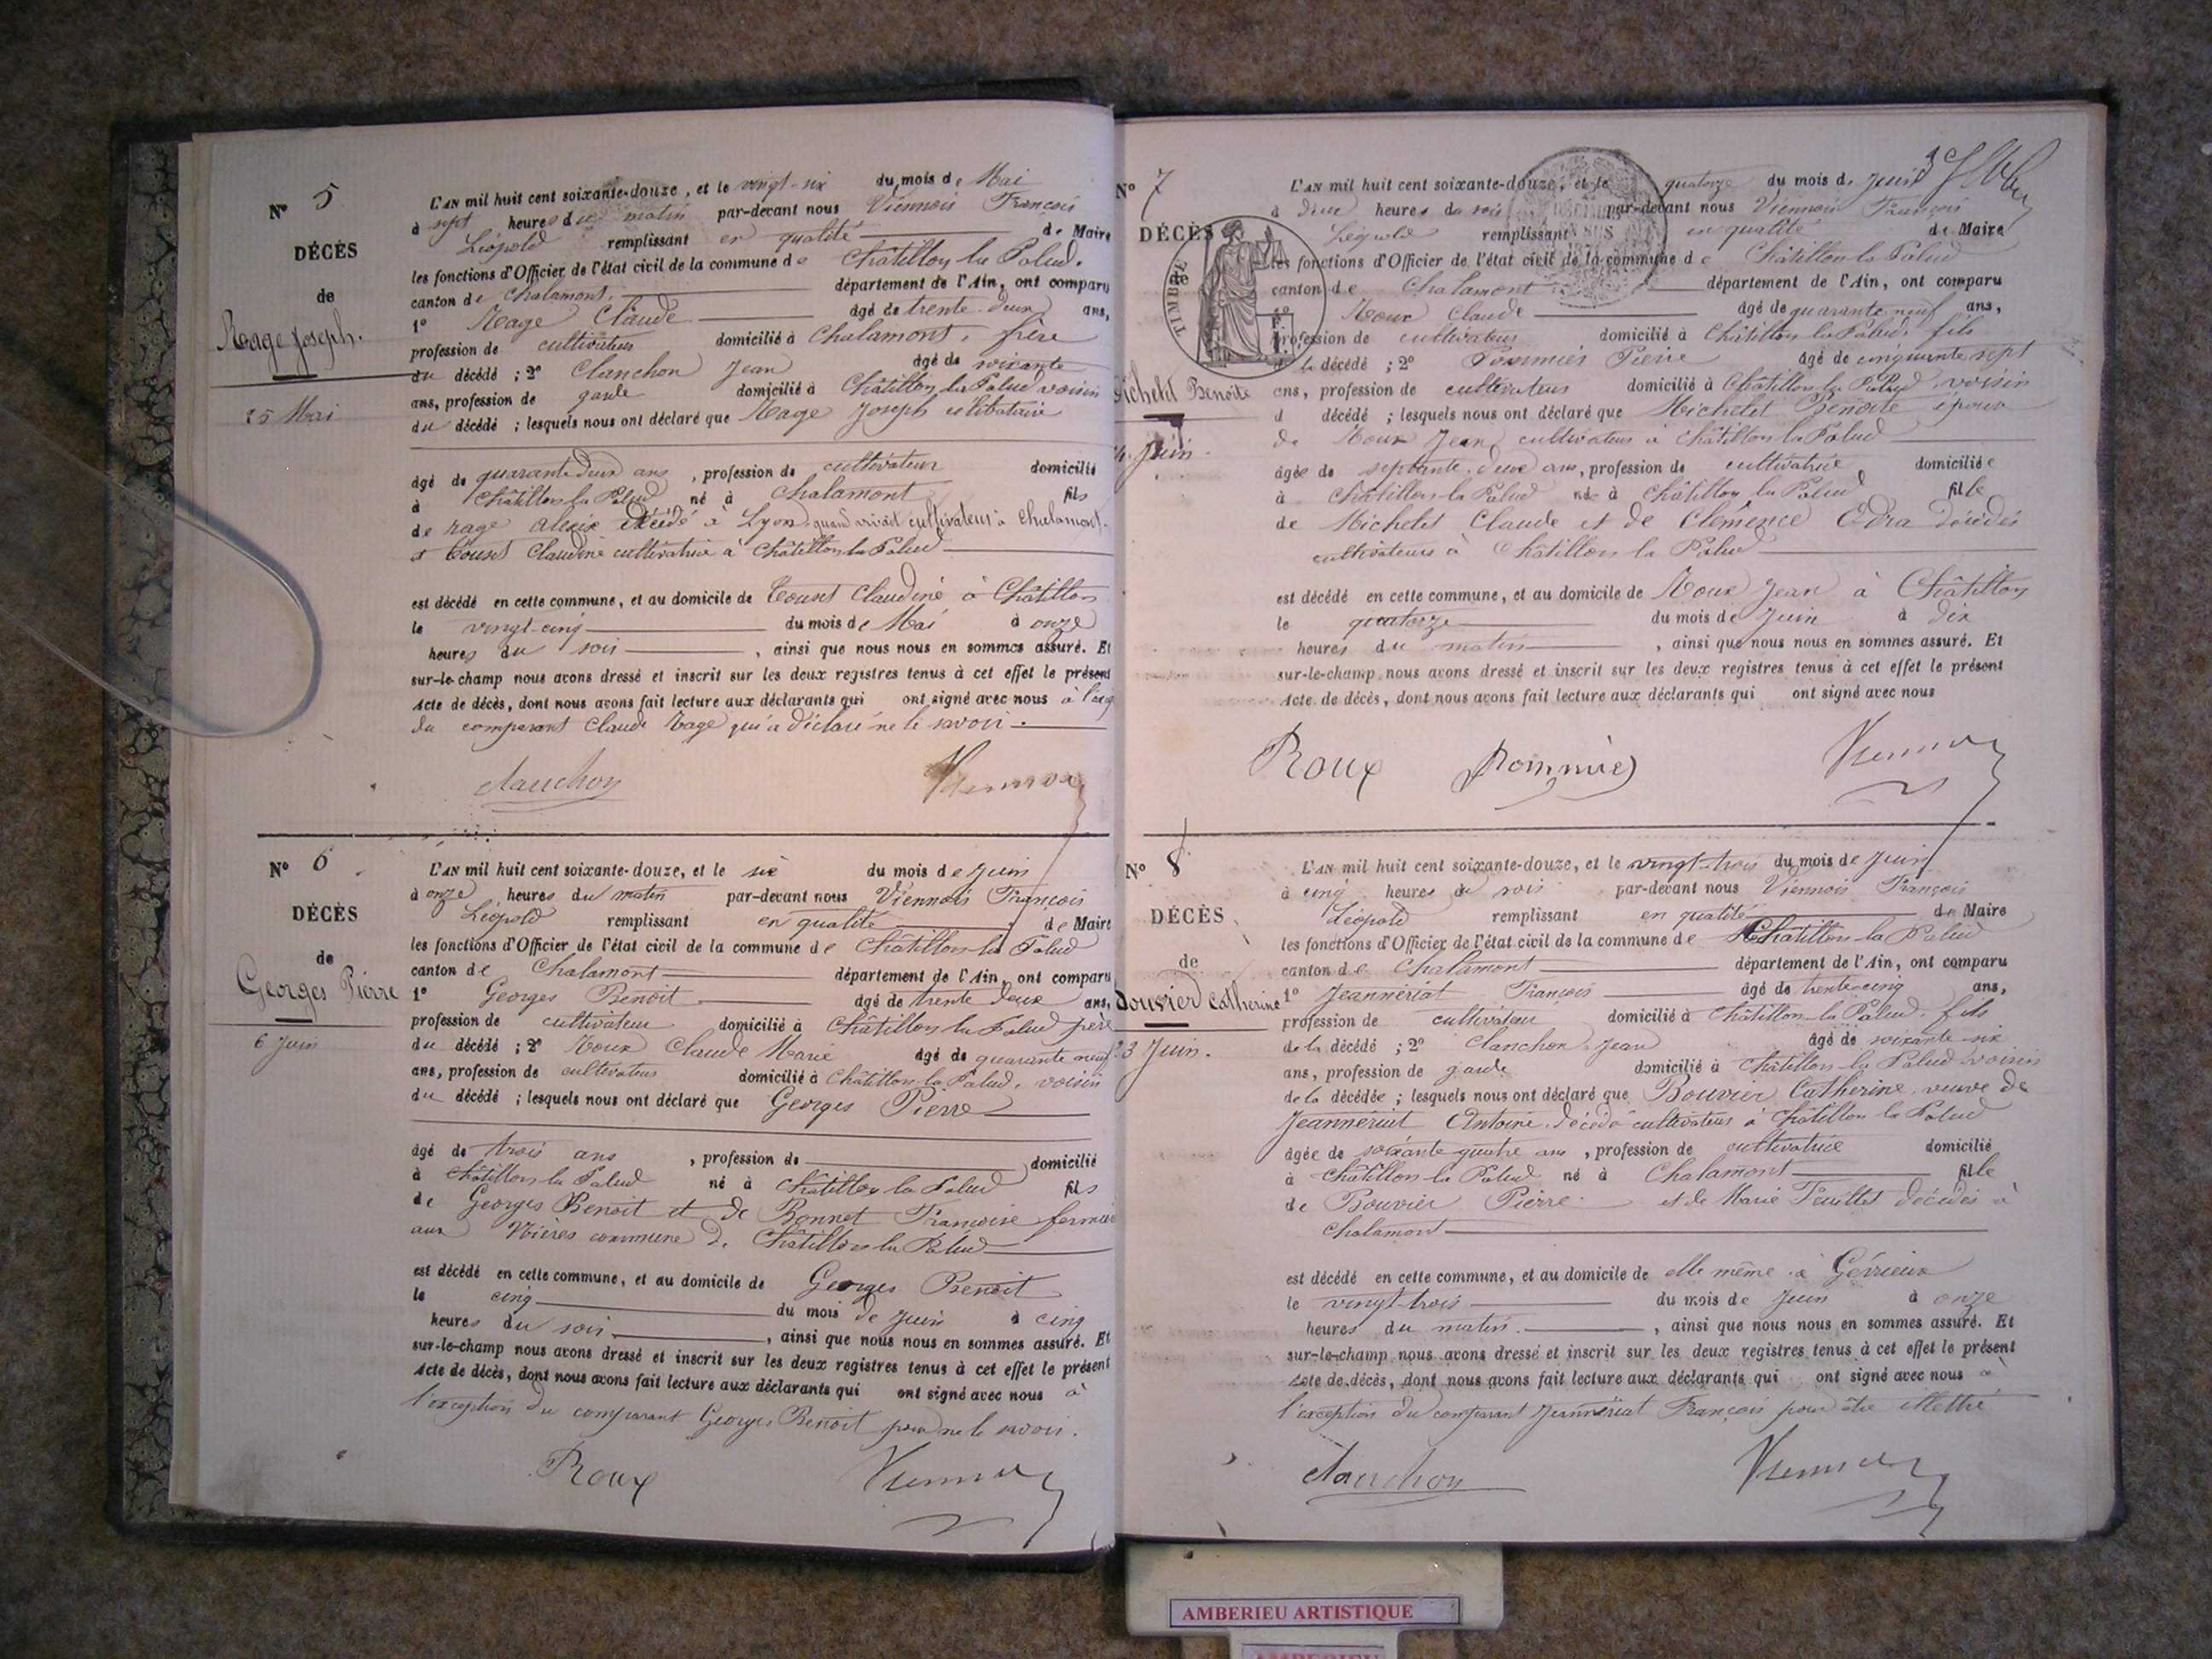 N° 5
DÉCÈS
de
Rage Joseph.
25 Mai
L'AN mil huit cent soixante-douze, et le vingt-six du mois de Mai
à sept heures du matin par-devant nous Viennois François
Léopold remplissant en qualité de Maire
les fonctions d'Officier de l'état civil de la commune de Châtillon la Palud.
canton de Chalamont. département de l'Ain, ont comparu
1° Rage Claude âgé de trente-deux ans,
profession de cultivateur domicilié à Chalamont, frère
du décédé ; 2° Clanchon Jean âgé de soixante
ans, profession de garde domicilié à Châtillon la Palud voisin
du décédé ; lesquels nous ont déclaré que Rage Joseph célibataire
âgé de quarante deux ans, profession de cultivateur domicilié
à Châtillon la Palud né à Chalamont fils
de rage Alexis décédé à Lyon quand vivait cultivateur à Chalamont.
et Couset Claudine cultivatrice à Châtillon la Palud
est décédé en cette commune, et au domicile de Couset Claudine à Châtillon
le vingt-cinq du mois de Mai à onze
heures du soir, ainsi que nous nous en sommes assuré. Et
sur-le-champ nous avons dressé et inscrit sur les deux registres tenus à cet effet le présent
Acte de décès, dont nous avons fait lecture aux déclarants qui ont signé avec nous à
du comparant Claude Rage qui a déclaré ne le savoir.
Clanchon Viennois
N° 6
DÉCÈS
de
Georges Pierre
6 Juin
L'AN mil huit cent soixante-douze, et le six du mois de Juin
à onze heures du matin par-devant nous Viennois François
Léopold remplissant en qualité de Maire
les fonctions d'Officier de l'état civil de la commune de Châtillon la Palud
canton de Chalamont département de l'Ain, ont comparu
1° Georges Benoit âgé de trente deux ans,
profession de cultivateur domicilié à Châtillon la Palud père
du décédé ; 2° Roux Claude Marie âgé de quarante neuf
ans, profession de cultivateur domicilié à Châtillon la Palud, voisin
du décédé ; lesquels nous ont déclaré que Georges Pierre
âgé de trois ans, profession de domicilié
à Châtillon la Palud né à Châtillon la Palud fils
de Georges Benoit et de Bonnet Françoise
aux commune de Châtillon la Palud
est décédé en cette commune, et au domicile de Georges Benoit
le cinq du mois de Juin à cinq
heures du soir, ainsi que nous nous en sommes assuré. Et
sur-le-champ nous avons dressé et inscrit sur les deux registres tenus à cet effet le présent
Acte de décès, dont nous avons fait lecture aux déclarants qui ont signé avec nous à
l'exception du comparant Georges Benoit pour ne le savoir.
Roux Viennois
N° 7
DÉCÈS
de
Benoite
Juin
TIMBRE
L'AN mil huit cent soixante-douze, et le quatorze du mois de Juin
à deux heures du soir par-devant nous Viennois François
Léopold remplissant en qualité de Maire
les fonctions d'Officier de l'état civil de la commune de Châtillon la Palud
canton de Chalamont département de l'Ain, ont comparu
1° Roux Claude âgé de quarante neuf ans,
profession de cultivateur domicilié à Châtillon la Palud, fils
de la décédé ; 2° Pommier Pierre âgé de cinquante sept
ans, profession de cultivateur domicilié à Châtillon la Palud voisin
d décédé ; lesquels nous ont déclaré que Michelet Benoite épouse
de Roux Jean, cultivateur à Châtillon la Palud
âgée de septante-deux ans, profession de cultivatrice domiciliée
à Châtillon la Palud née à Châtillon la Palud fille
de Michelet Claude et de Clémence Odra décédés
cultivateurs à Châtillon la Palud
est décédé en cette commune, et au domicile de Roux Jean à Châtillon
le quatorze du mois de Juin à dix
heures du matin, ainsi que nous nous en sommes assuré. Et
sur-le-champ nous avons dressé et inscrit sur les deux registres tenus à cet effet le présent
Acte de décès, dont nous avons fait lecture aux déclarants qui ont signé avec nous
Roux Pommier Viennois
N° 8
DÉCÈS
de
Bouvier Catherine
23 Juin.
L'AN mil huit cent soixante-douze, et le vingt-trois du mois de Juin
à cinq heures du soir par-devant nous Viennois François
Léopold remplissant en qualité de Maire
les fonctions d'Officier de l'état civil de la commune de Châtillon la Palud
canton de Chalamont département de l'Ain, ont comparu
1° Jeanneriat François âgé de trente cinq ans,
profession de cultivateur domicilié à Châtillon la Palud, fils
de la décédé ; 2° Clanchon Jean âgé de soixante-six
ans, profession de garde domicilié à Châtillon la Palud voisin
de la décédée ; lesquels nous ont déclaré que Bouvier Catherine veuve de
Jeanneriat Antoine décédé cultivateur à Châtillon la Palud
âgée de soixante quatre ans, profession de cultivatrice domicilié
à Châtillon la Palud né à Chalamont fille
de Bouvier Pierre et de Marie Feuillet décédés à
Chalamont
est décédé en cette commune, et au domicile de elle même à Gévrieux
le vingt-trois du mois de Juin à onze
heures du matin, ainsi que nous nous en sommes assuré. Et
sur-le-champ nous avons dressé et inscrit sur les deux registres tenus à cet effet le présent
Acte de décès, dont nous avons fait lecture aux déclarants qui ont signé avec nous à
l'exception du comparant Jeanneriat François pour être illettré
Clanchon Viennois
AMBERIEU ARTISTIQUE
AMBERIEU